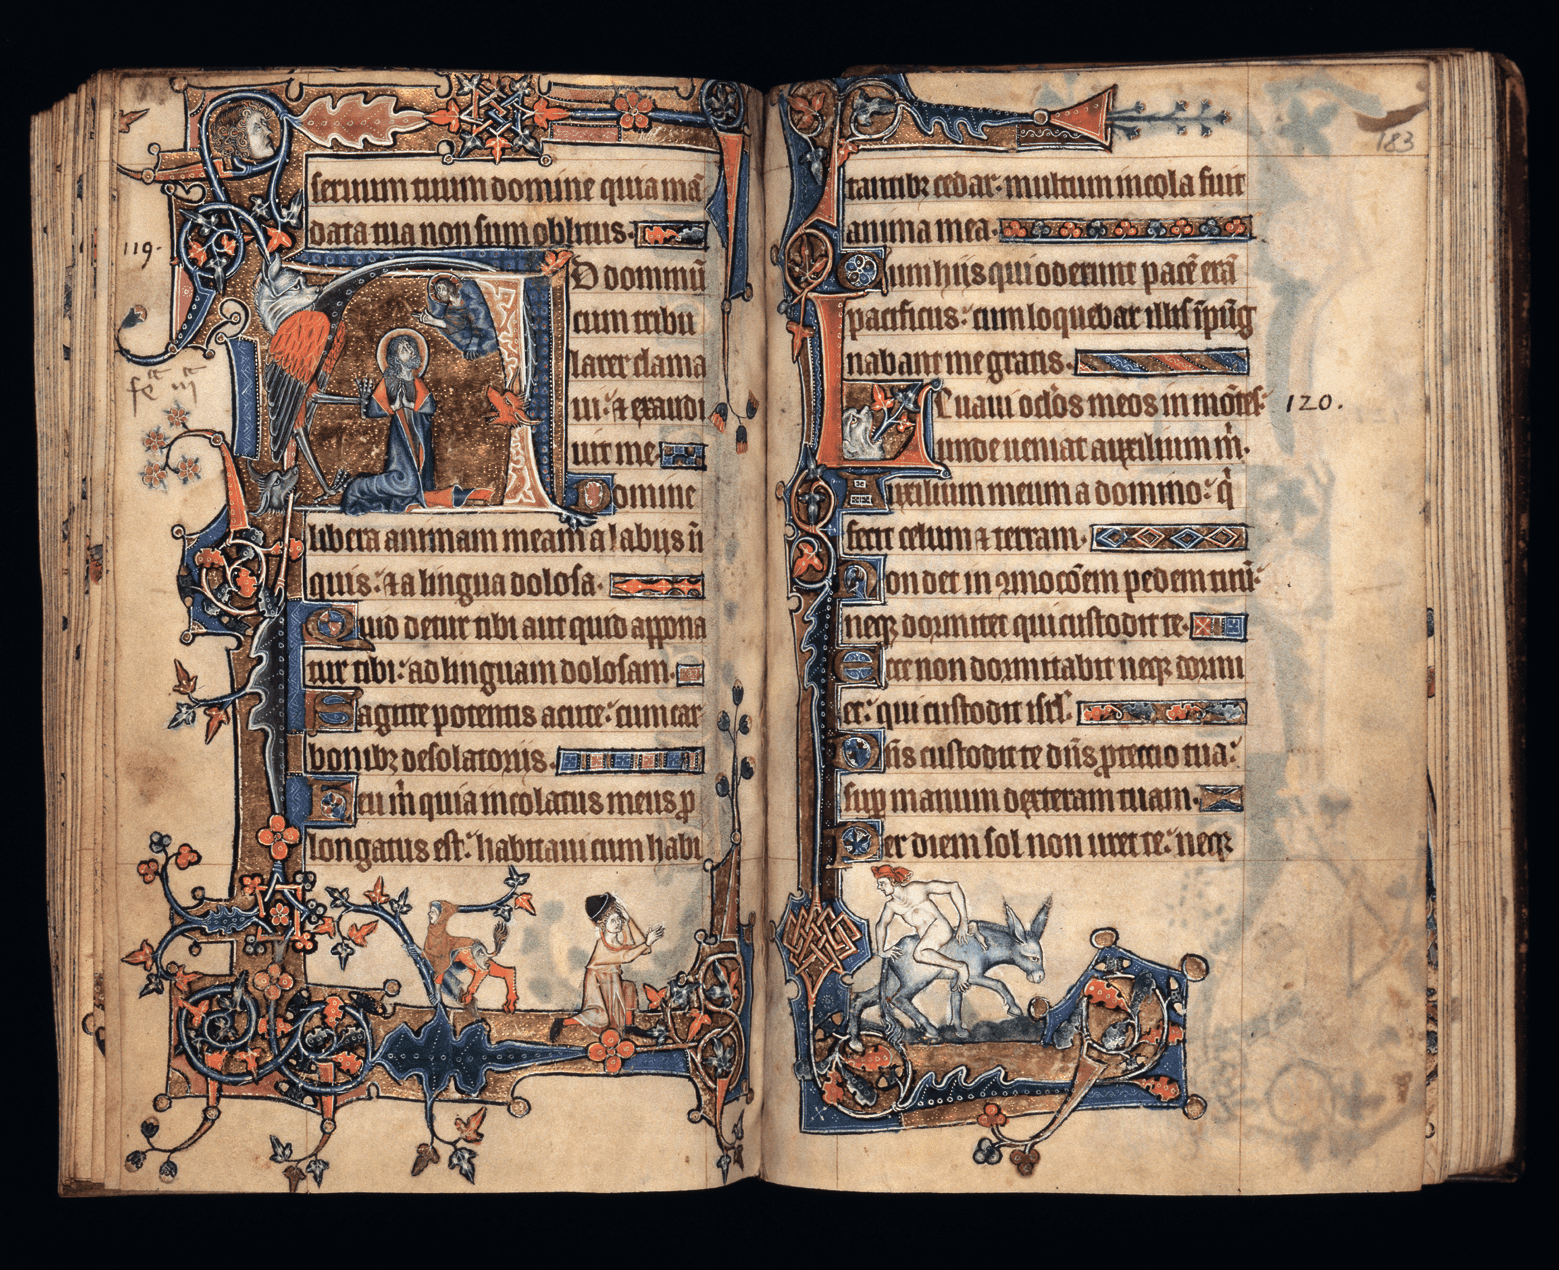 seruum tuum domine quia mā
data tua non sum oblitus.
119.
AD dominū
cum tribu
larer clama
ui: et exaudi
uit me
Domine
libera animam meam a labiis ī
quis: et a lingua dolosa.
Quid detur tibi aut quid appona
tur tibi: ad linguam dolosam.
Sagitte potentis acute: cum car
bonibꝫ desolatoriis.
Heu m̄ quia incolatus meus ꝓ
longatus est: habitaui cum habi
183
tantibꝫ cedar. multum incola fuit
anima mea.
Cum hiis qui oderunt pacē erā
pacificus: cum loquebar illis īpug
nabant me gratis.
Leuaui oc̄los meos in mōtes: 120.
unde ueniat auxilium m̄.
Auxilium meum a domino: q̄
fecit celum et terram.
Non det in ꝯmocōem pedem tuū:
neqꝫ dormitet qui custodit te.
Ecce non dormitabit neqꝫ dormi
et: qui custodit isrl.
Dn̄s custodit te dn̄s ꝓtectio tua:
suꝑ manum dexteram tuam.
Per diem sol non uret te: neqꝫ